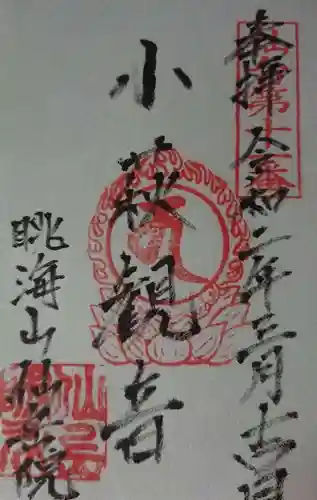 奉拝 令和二年三月吉日
小萩観音
眺海山仙岳院